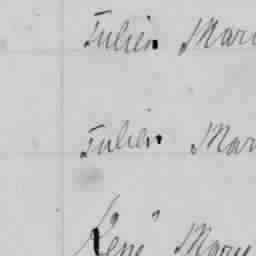 Julien Mari
Julien Mar
René Mary